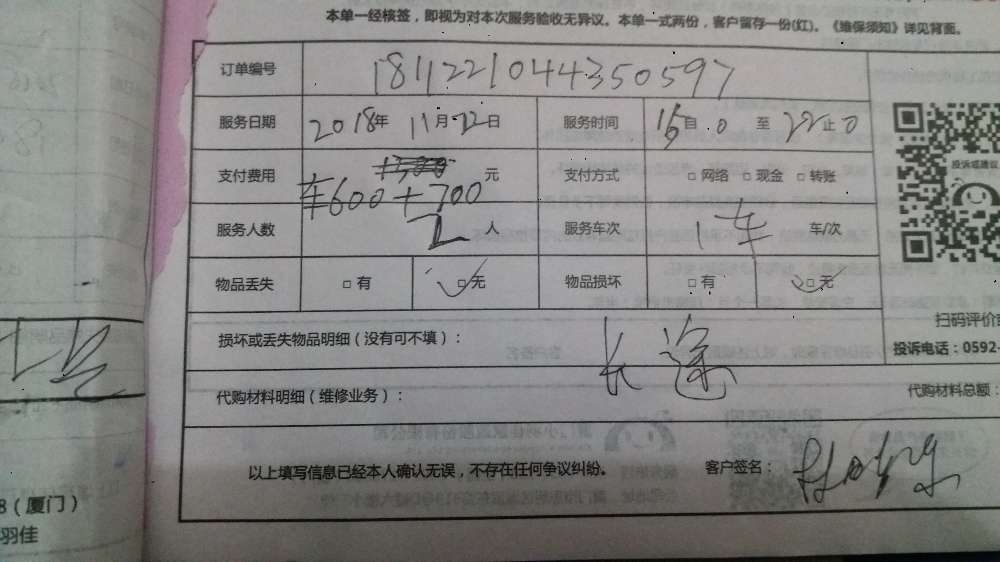 本单一经核签，即视为对本次服务验收无异议。本单一式两份，客户留存一份(红)。《维保须知》详见背面。
订单编号 1811221044350597
服务日期 2018年 11月22日 服务时间 16自0 至 22止0
支付费用 元 支付方式 □网络 □现金 □转账
车600+700
服务人数 2人 服务车次 1车 车/次
物品丢失 □有 ☑无 物品损坏 □有 ☑无
投诉或建议
扫码评价
损坏或丢失物品明细（没有可不填）：
长途
投诉电话：0592-
代购材料明细（维修业务）： 代购材料总额：
以上填写信息已经本人确认无误，不存在任何争议纠纷。 客户签名：
8（厦门）
羽佳